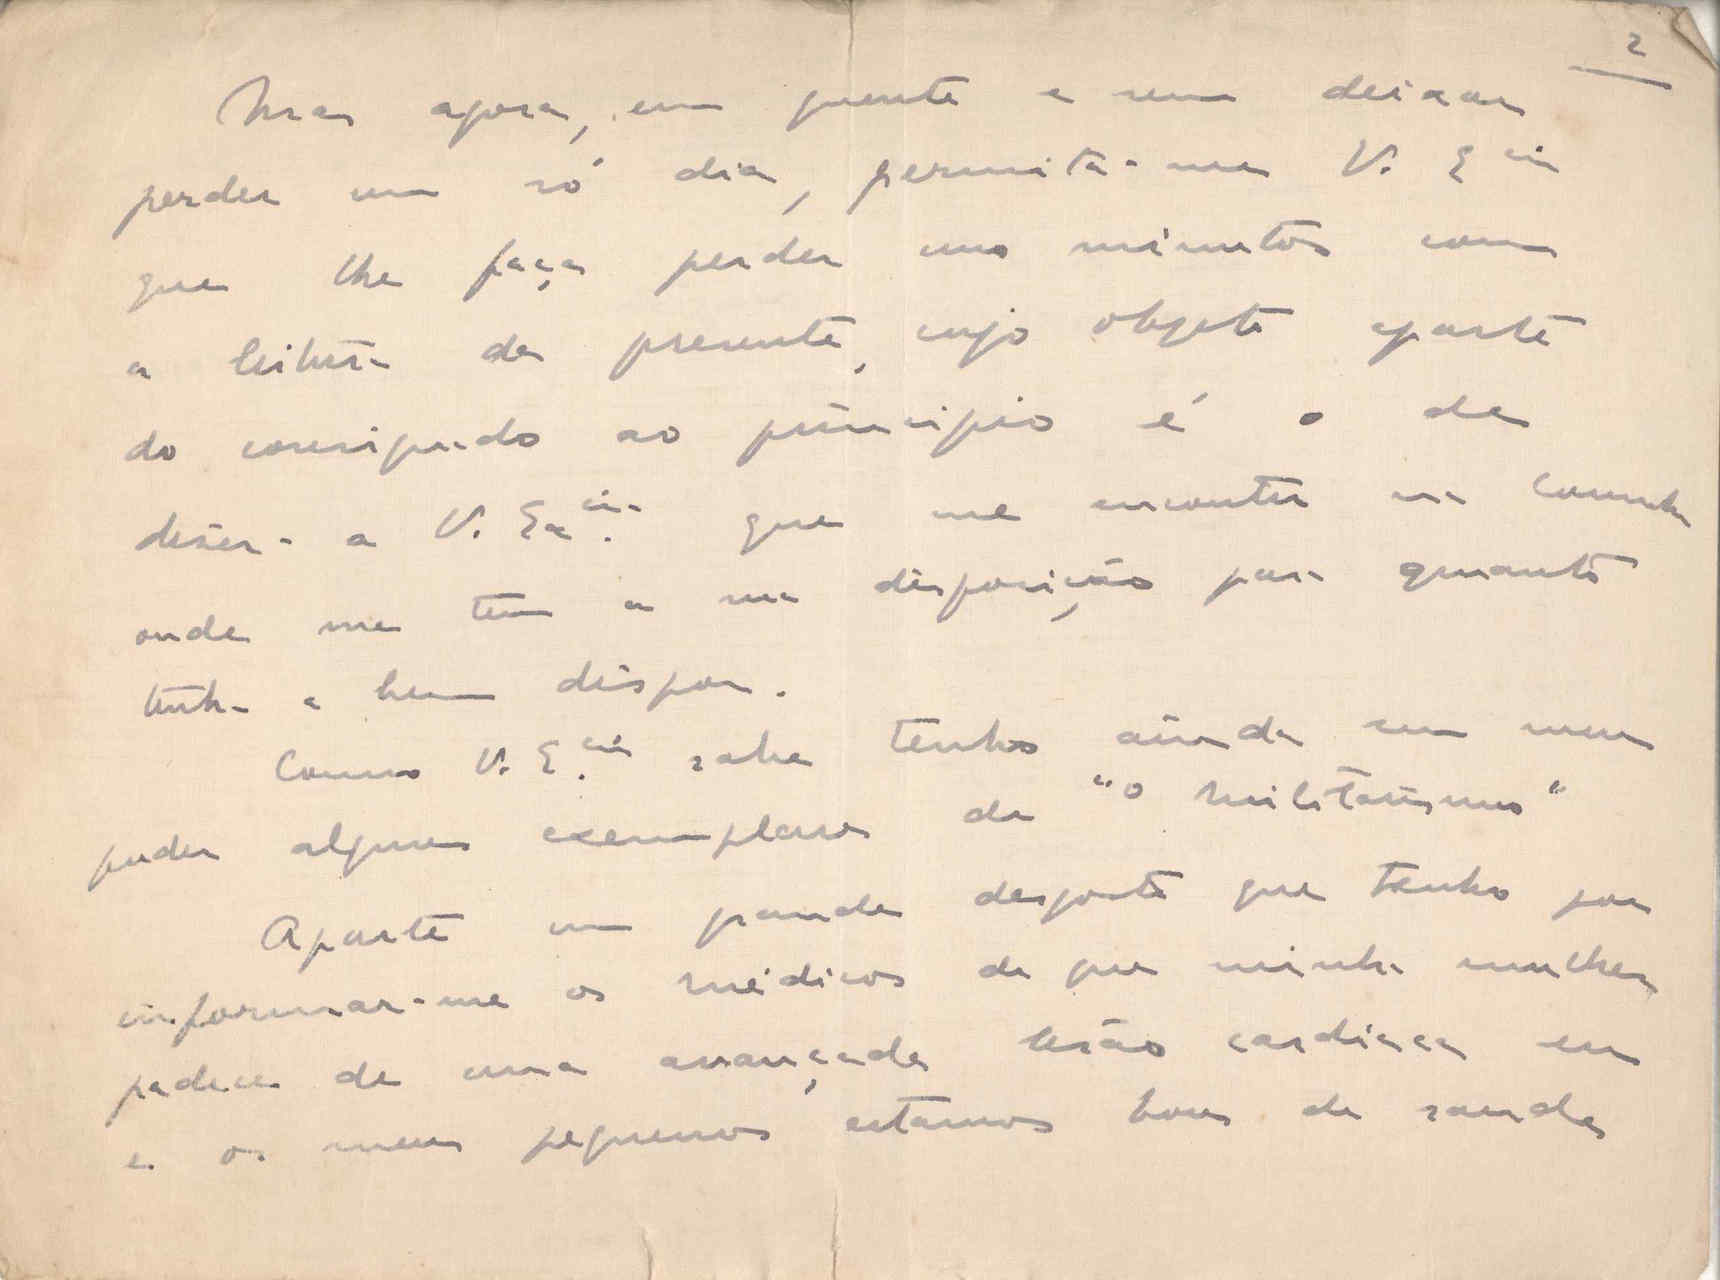 2
Mas agora, em quente e sem deixar
perder um só dia, permita-me V. Ecia
que lhe faça perder uns minutos com
a leitura da presente, cujo objeto aparte
do consignado ao principio é o de
dizer-a V. Excia. que me encontro na Corunha
onde me tem a sua disposição para quanto
tenha a bem dispor.
Como V. E.cia sabe tenho ainda em meu
poder alguns exemplares de "O Militarismo"
Aparte um grande desgosto que tenho por
informar-me os médicos de que minha mulher
padece de uma avançada lesão cardiaca eu
e os meus pequenos estamos bons de saude